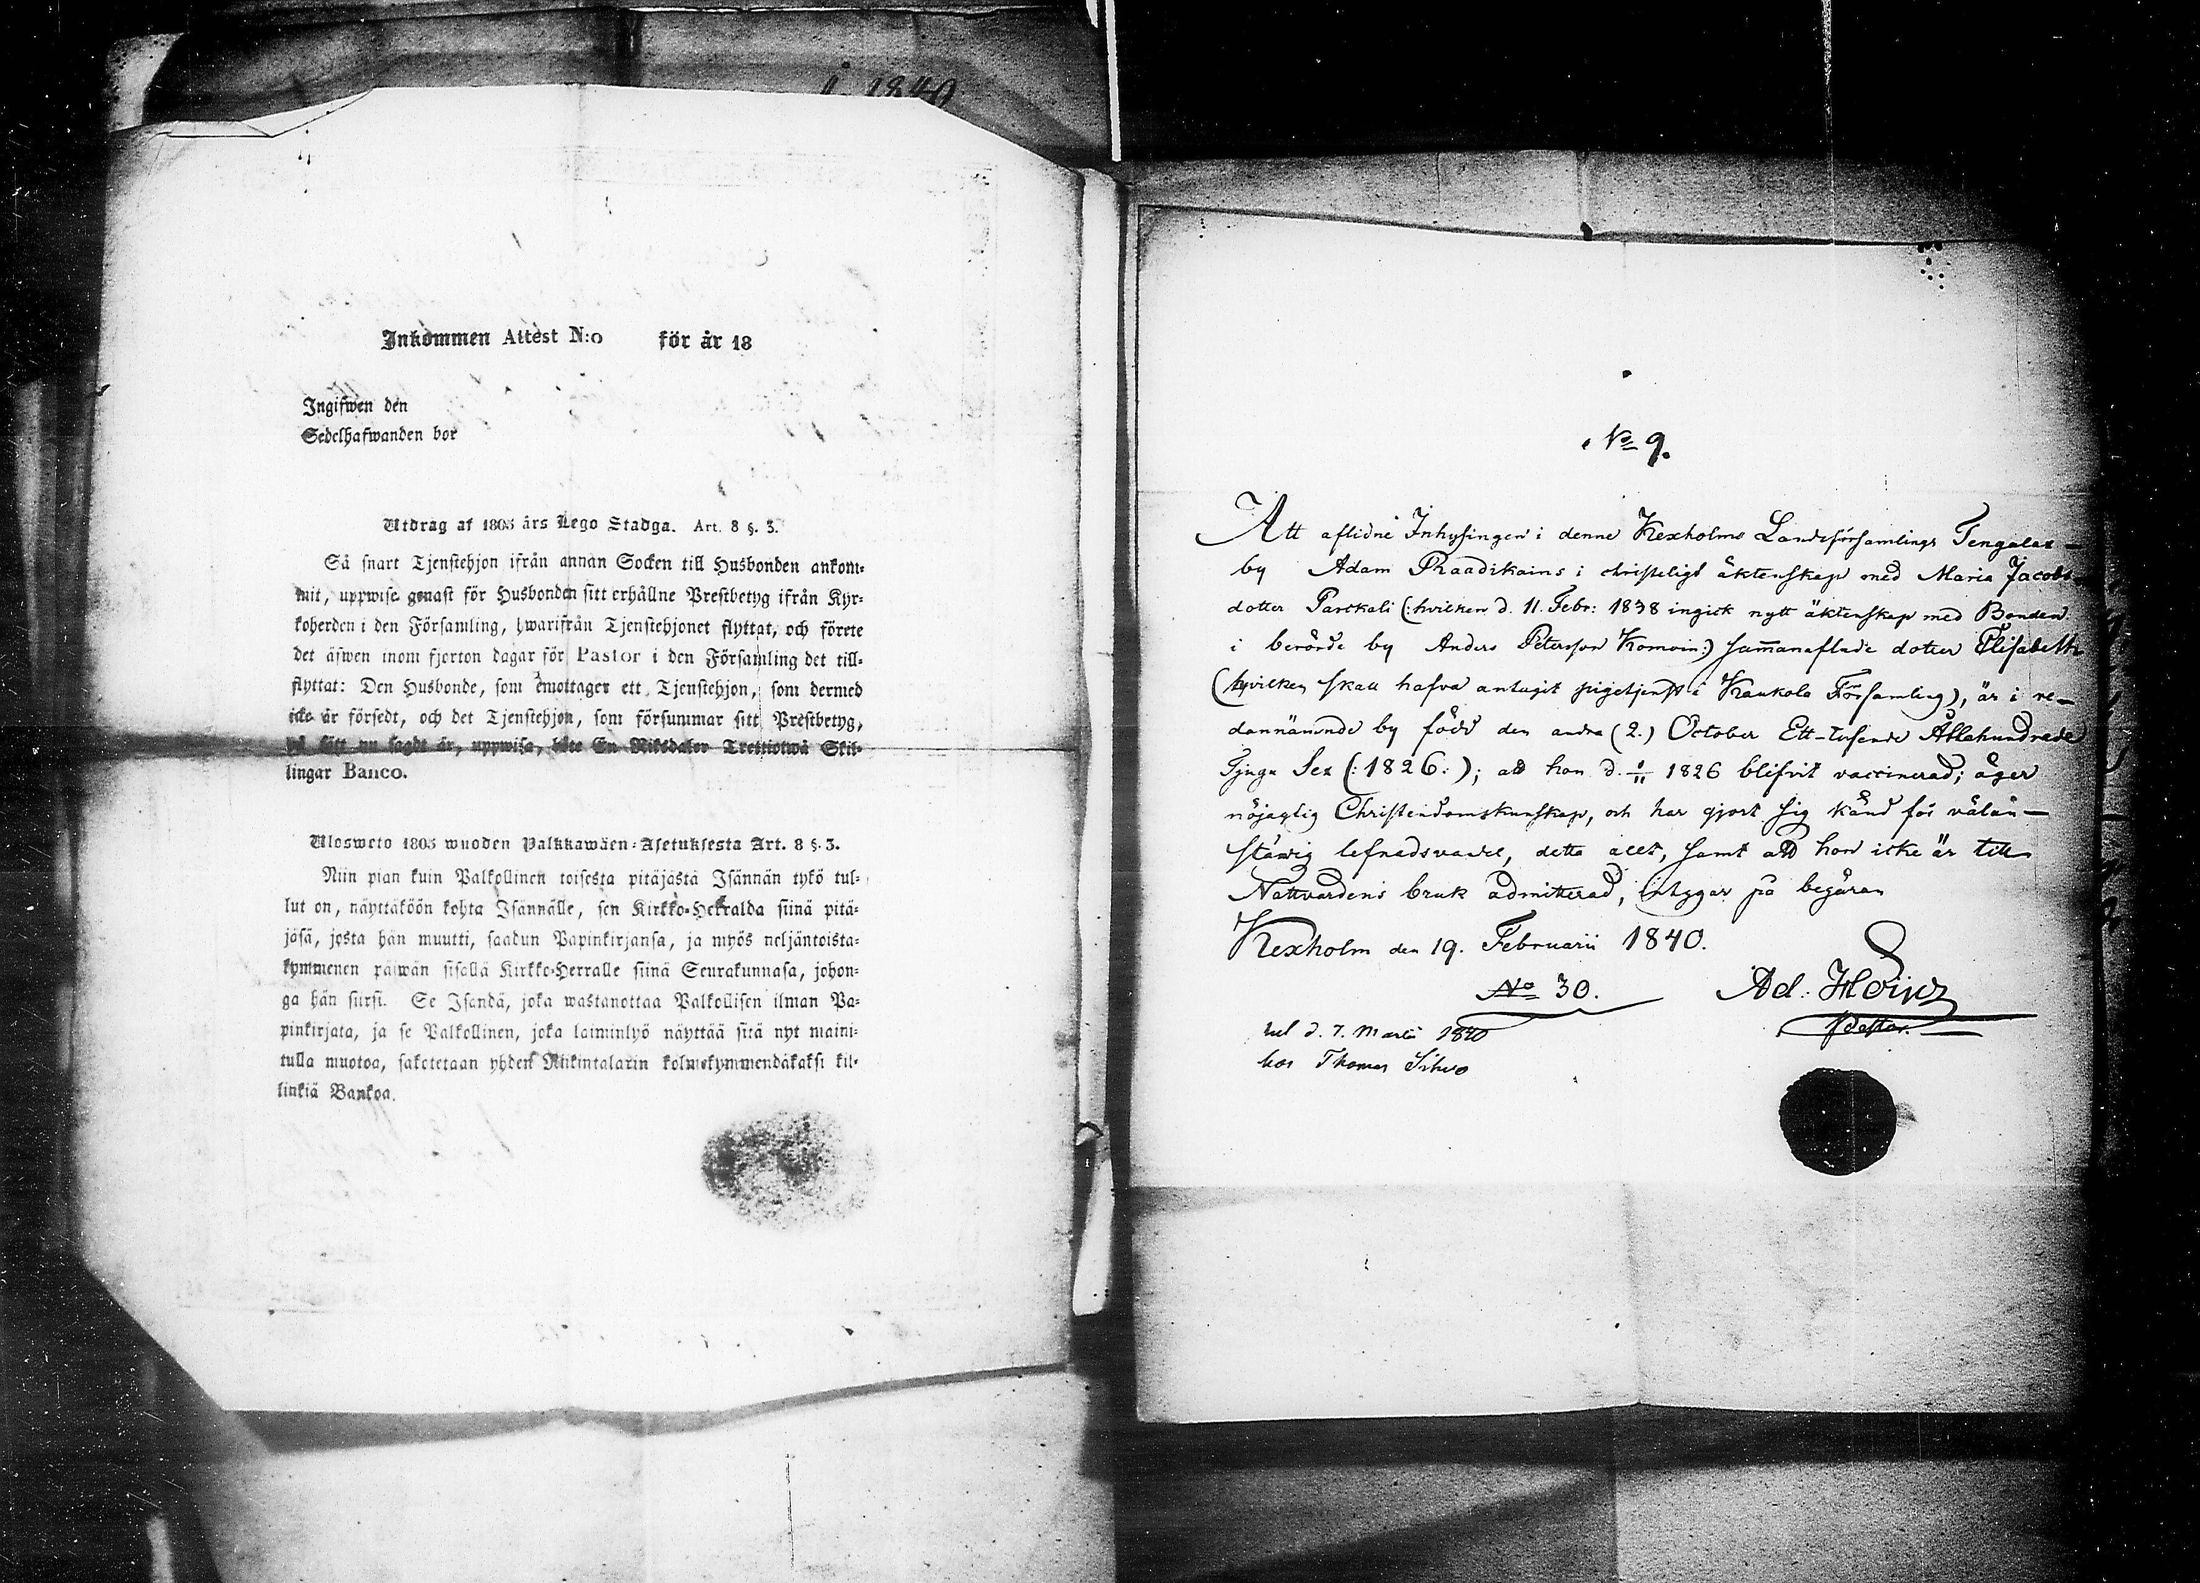 i 1840
Inkommen Attest N:o för år 18
Ingifwen den
Sedelhafwanden bor
Utdrag af 1805 års Lego Stadga. Art. 8 §. 3.
Så snart Tjenstehjon ifrån annan Socken till Husbonden ankom-
mit, uppwise genast för Husbonden sitt erhållne Prestbetyg ifrån Kyr-
koherden i den Församling, hwarifrån Tjenstehjonet flyttat, och förete
det äfwen inom fjorton dagar för Pastor i den Församling det till-
flyttat: Den Husbonde, som emottager ett Tjenstehjon, som dermed
icke är försedt, och det Tjenstehjon, som försummar sitt Prestbetyg,
på sätt nu sagdt är, uppwisa, böte En Riksdaler Trettiotwå Skil-
lingar Banco.
Ulosweto 1805 wuoden Palkkawäen-Asetuksesta Art. 8 §. 3.
Niin pian kuin Palkollinen toisesta pitäjästä Isännän tykö tul-
lut on, näyttäköön kohta Isännälle, sen Kirkko-Herralda siinä pitä-
jäsä, josta hän muutti, saadun Papinkirjansa, ja myös neljäntoista-
kymmenen päiwän sisällä Kirkko-Herralle siinä Seurakunnasa, johon-
ga hän siirsi. Se Isandä, joka wastanottaa Palkollisen ilman Pa-
pinkirjata, ja se Palkollinen, joka laiminlyö näyttää sitä nyt maini-
tulla muotoa, saketetaan yhden Riikintalarin kolmekymmendäkaksi kil-
linkiä Bankoa.
No 9.
Att aflidne Inhysingen i denne Kexholms Landsförsamlings Tengalax-
by Adam Raadikains i christeligt äktenskap med Maria Jacobs-
dotter Parckali (:hvilken d. 11. Febr: 1838 ingick nytt äktenskap med Bonden
i berörde by Anders Petersson Komoin:) sam̄anaflade dotter Elisabeth
(hvilken skall hafva antagit pigetjenst i Kaukola Församling), är i re-
dannämnde by född den andra (2.) October Ett-tusende Åttahundrede
Tjugu Sex (:1826:); att hon d. 1/11 1826 blifvit vaccinerad; äger
nöjagtig Christendomskunskap, och har gjort sig känd för välän-
ständig lefnadsvandel, detta allt, samt att hon icke är till
Nattvardens bruk admitterad, intygar på begäran
Kexholm den 19. Februarii 1840.
No 30.
Ad: Hoinz
Pastor.
d. 7. Martii 1840
hos Thomas Sihvo